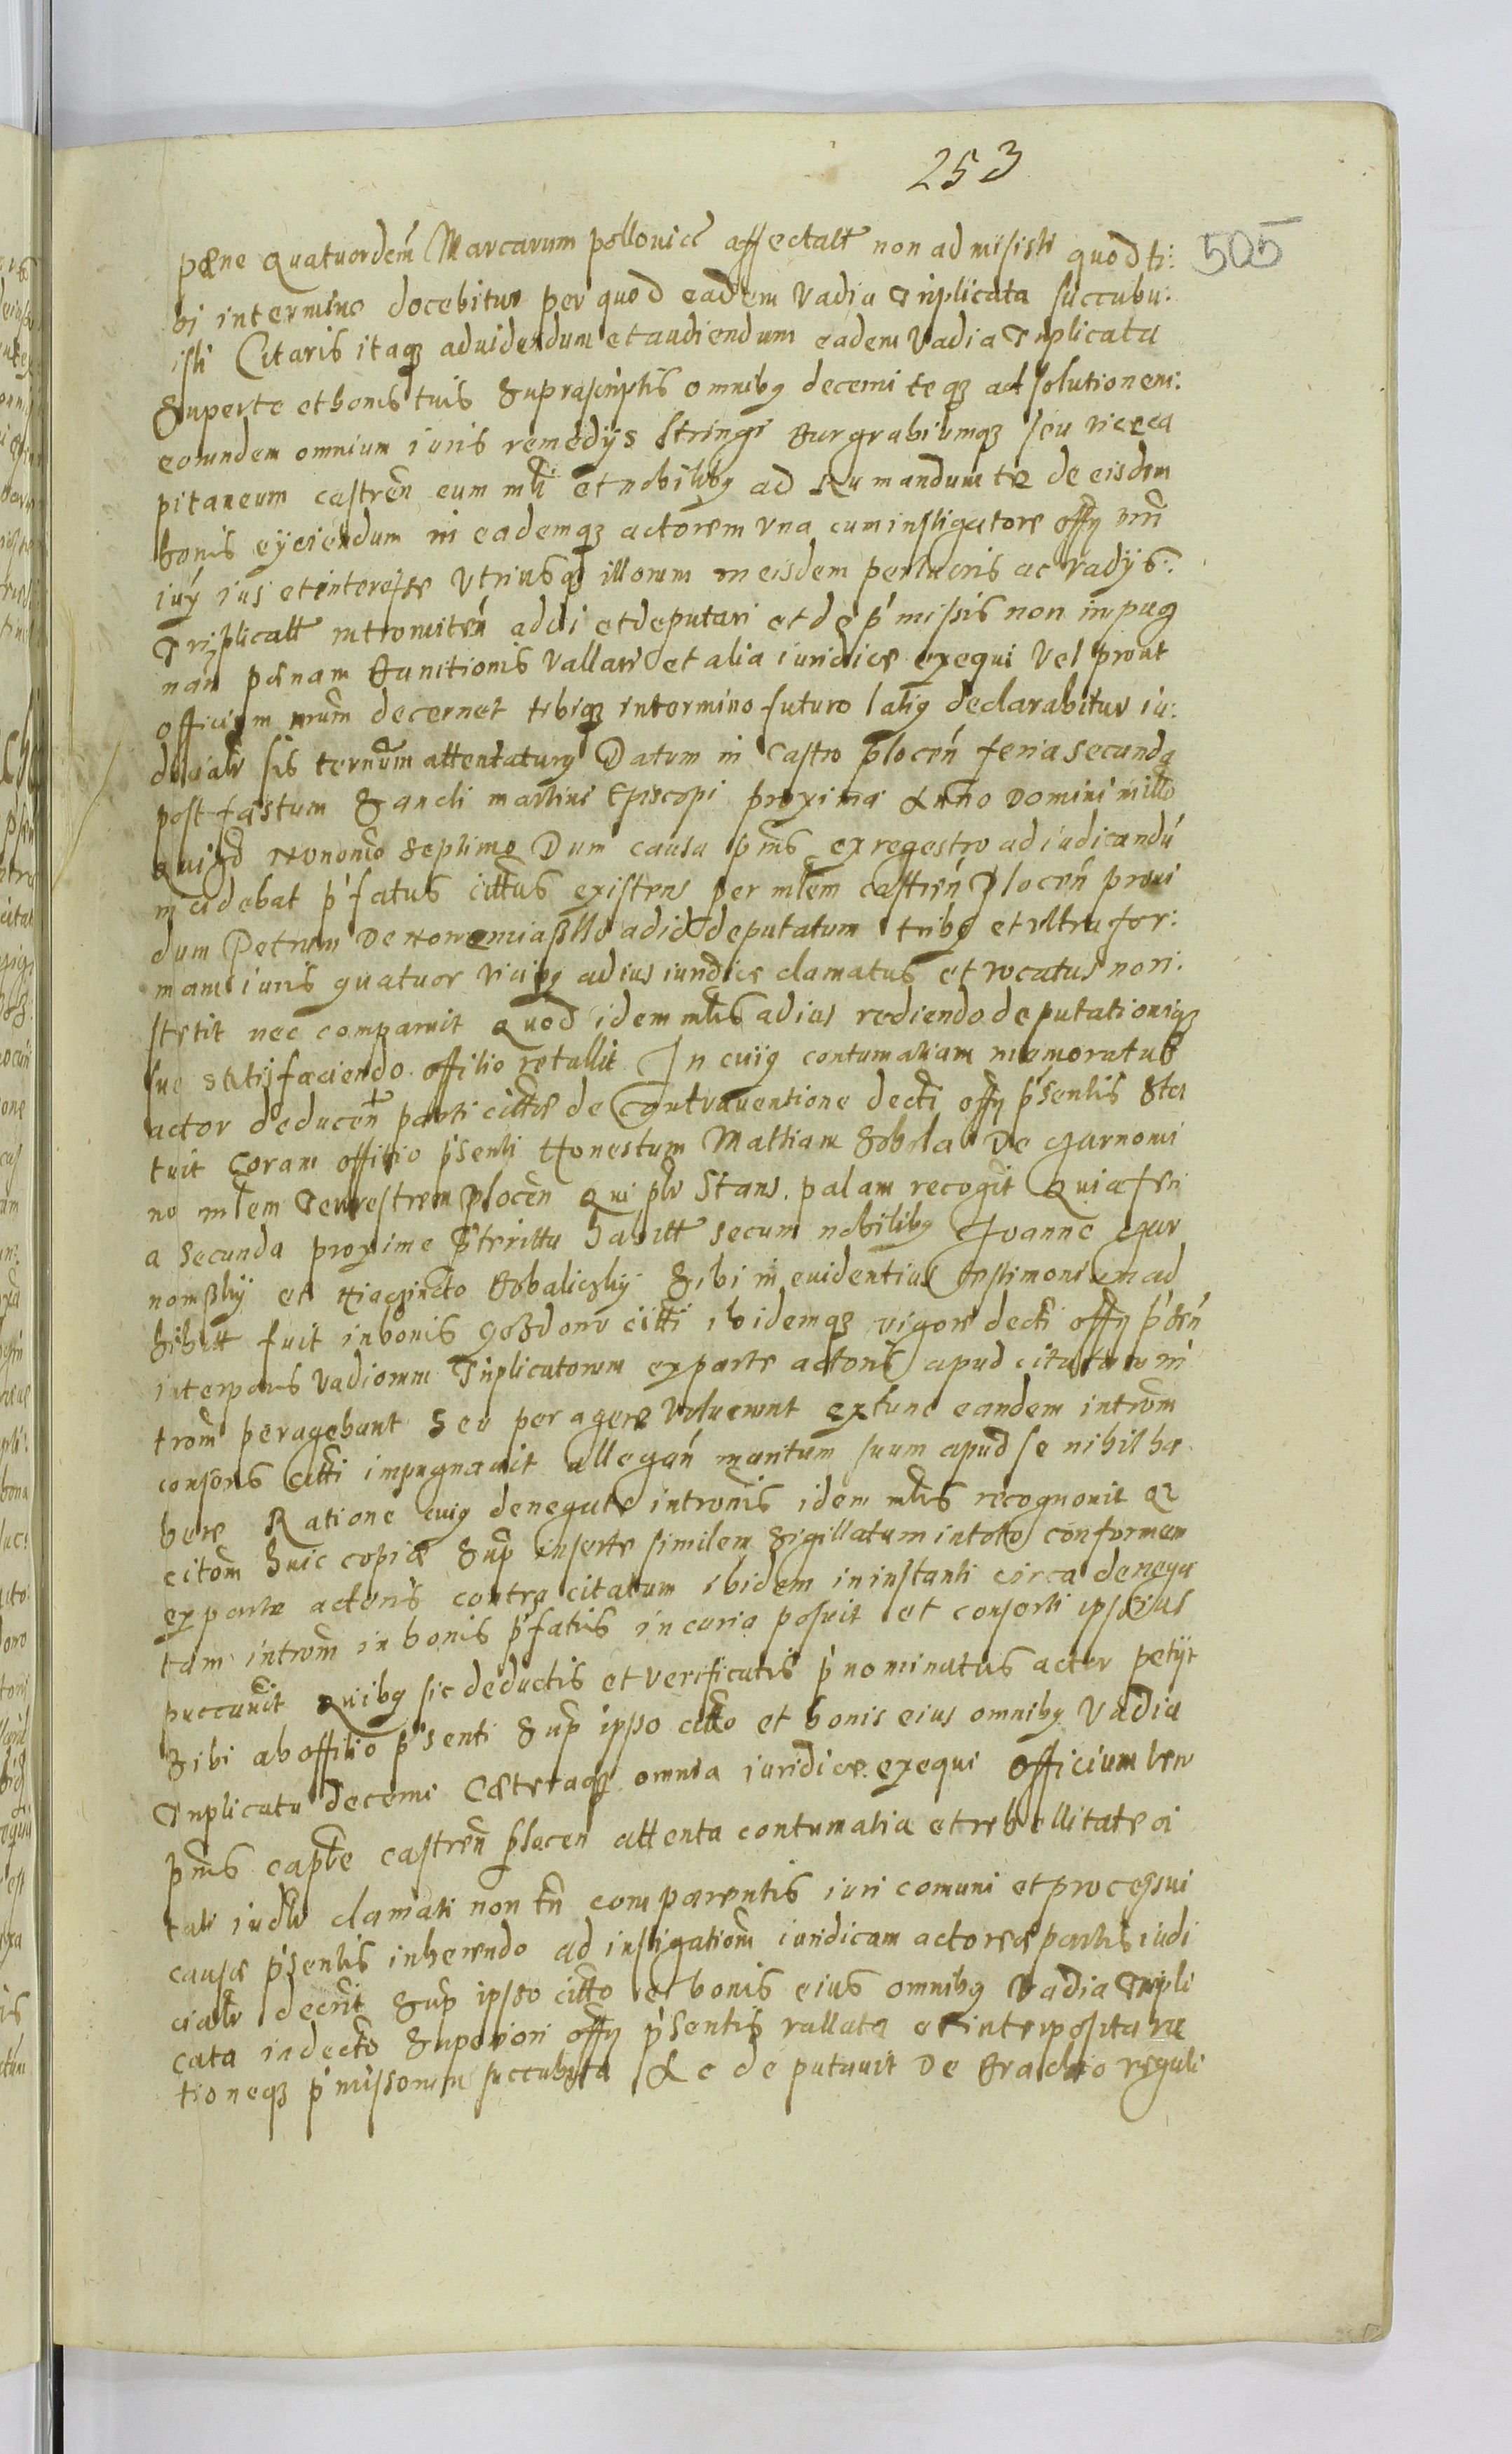 253
505
pœne Quatuordem Marcarum pollonicł affectatł non admisisti quod ti:
bi intermino docebitur per quod eadem vadia Triplicata succubu:
isti Citaris itaqз advidendum et audiendum eadem vadia Triplicata
Superte et bonis tuis Suprascriptis omnibq decerni teqз ad solutionem:
eorundem omnium iuris remedÿs stringi Burgrabiumqз seu viceca
pitaneum castreñ cum mlі et nobilibq ad Ru mandum te de eisdem
bonis eÿciendum in eademqз actorem vna cum instigatore offÿ nrі
iuÿ ius et interesse vtriusqз illorum in eisdem perlucris ac vadÿs:
Triplicatł intromiteñ addi et deputari et de pˊmissis non inpug
nan pœnam Banitionis vallari et alia iuridice exequi vel prout
officium nrum decernet tibiqз intermino futuro latiq declarabitur iu:
dicialr sis ternum attentaturq Datum in Castro ploceń feria secunda
post fæstum Sancti martini Episcopi proxima Anno Domini millo
Quigd Nonomo Septimo Dum causa pñs ex regestro adiudicandú
incidebat pˊfatus citłus existens per mlem castreń Ploceń provi
dum Petrum De adid deputatum tribq et vltra for:
mam iuris quatuor vicibq adius iuridice clamatus et vocatus non:
stetit nec comparuit Quod idem mlis adius rediendo deputationiqз
sue satisfaciendo offitio retullit In cuiq contumatiam memoratus
actor deduceñ parti citte de Contraventione decti offÿ pˊsentis Sta
tuit Coram offitio pˊsenti Honestum Mathiam Sobola De Czarnowi
no mlem Terrestrem Ploceñ Qui plr Stans palam recogit Quia feri
a secunda proxime Pˊteritta habitł secum nobilibq Joanne Czar
nomskÿ et Hiacincto Bobaliczkÿ Sibi in evidentius testimonium ad
hibitł fuit inbonis Gozdovo citti ibidemqз vigore decti offÿ pˊseń
interponis vadiorum Triplicatorum exparte actoris apud citatum in
trom peragebant Seu peragere voluerunt extunc eandem introm
consors citti impugnavit allegań maritum suum apud se nihil ha
bere Ratione cuiq denegate intronis idem mlis recognovit Qз
citom huic copiæ Sup inserte similem Sigillatum intoto conformem
exparte actoris contra citatum ibidem ininstanti circa denega
tam introm inbonis pˊfatis incuria posuit et consorti ipsius
puccavit Quibq sic deductis et verificatis pˊnominatus actor petÿt
Sibi aboffitio pˊsenti Sup ipso citto et bonis eius omnibq vadia
Triplicata decerni Cæteraqз omnia iuridice exequi Officium ven
pñs captle castreñ ploceñ attenta contumatia et rebellitate ci
tati iudlr clamati non tñ comparentis iuri comuni et processui
causæ pˊsentis inherendo ad instigationem iuridicam actoreæ partis iudi
cialr decrit Sup ipso citto et bonis eius omnibq vadia Tripli
cata indecto Superiori offÿ pˊsentis vallata et interposita ra
tioneqз pˊmissorum succubita Ac deputavit De Brachio reguli